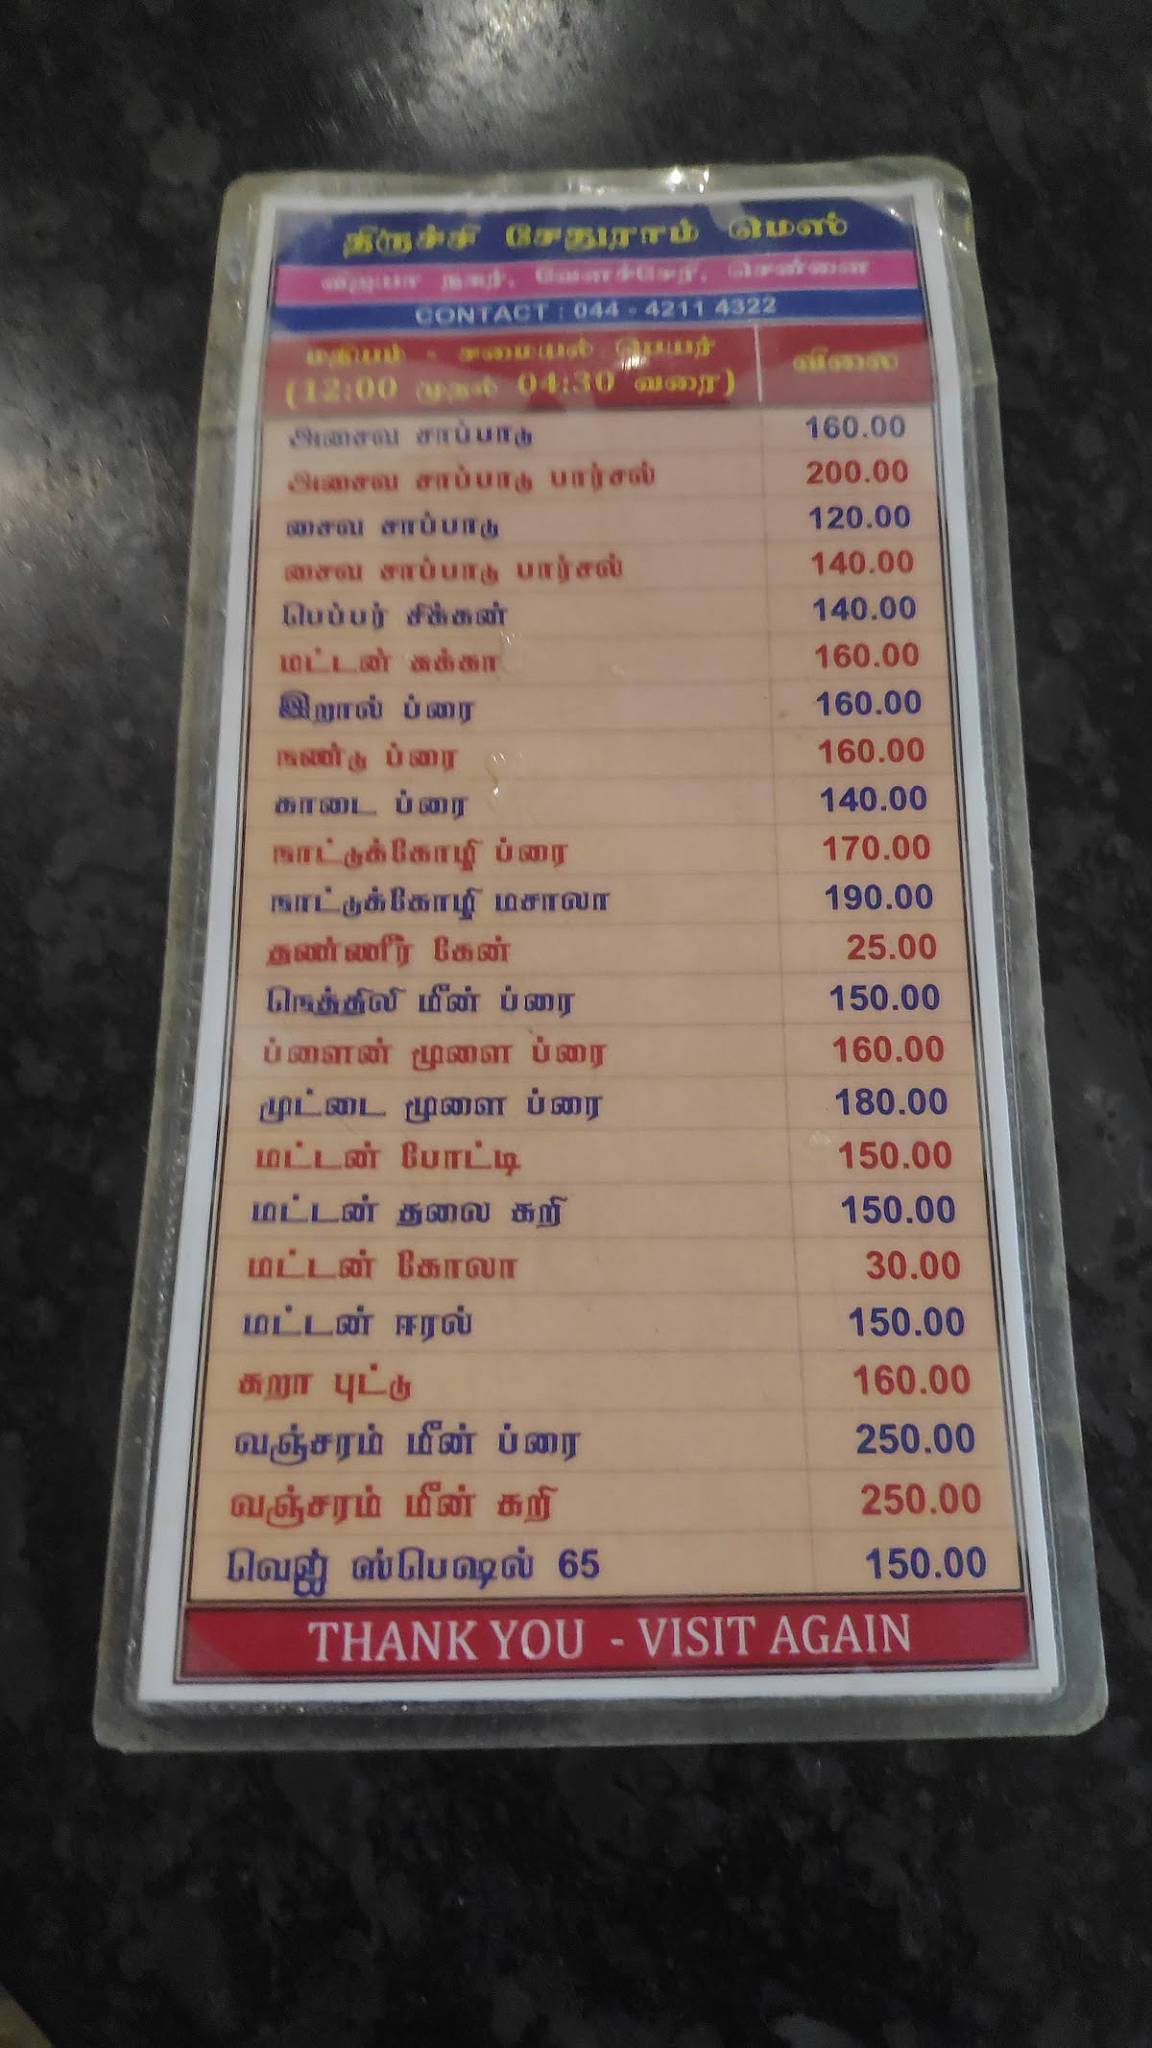 திருச்சி சேதுராம் மெஸ்
விஜயா நகர், வேளச்சேரி, சென்னை
CONTACT : 044 - 4211 4322
மதியம் - சமையல் பெயர்
(12:00 முதல் 04:30 வரை) விலை
அசைவ சாப்பாடு 160.00
அசைவ சாப்பாடு பார்சல் 200.00
சைவ சாப்பாடு 120.00
சைவ சாப்பாடு பார்சல் 140.00
பெப்பர் சிக்கன் 140.00
மட்டன் சுக்கா 160.00
இறால் ப்ரை 160.00
நண்டு ப்ரை 160.00
காடை ப்ரை 140.00
நாட்டுக்கோழி ப்ரை 170.00
நாட்டுக்கோழி மசாலா 190.00
தண்ணீர் கேன் 25.00
நெத்திலி மீன் ப்ரை 150.00
ப்ளைன் மூளை ப்ரை 160.00
முட்டை மூளை ப்ரை 180.00
மட்டன் போட்டி 150.00
மட்டன் தலை கறி 150.00
மட்டன் கோலா 30.00
மட்டன் ஈரல் 150.00
சுறா புட்டு 160.00
வஞ்சரம் மீன் ப்ரை 250.00
வஞ்சரம் மீன் கறி 250.00
வெஜ் ஸ்பெஷல் 65 150.00
THANK YOU - VISIT AGAIN